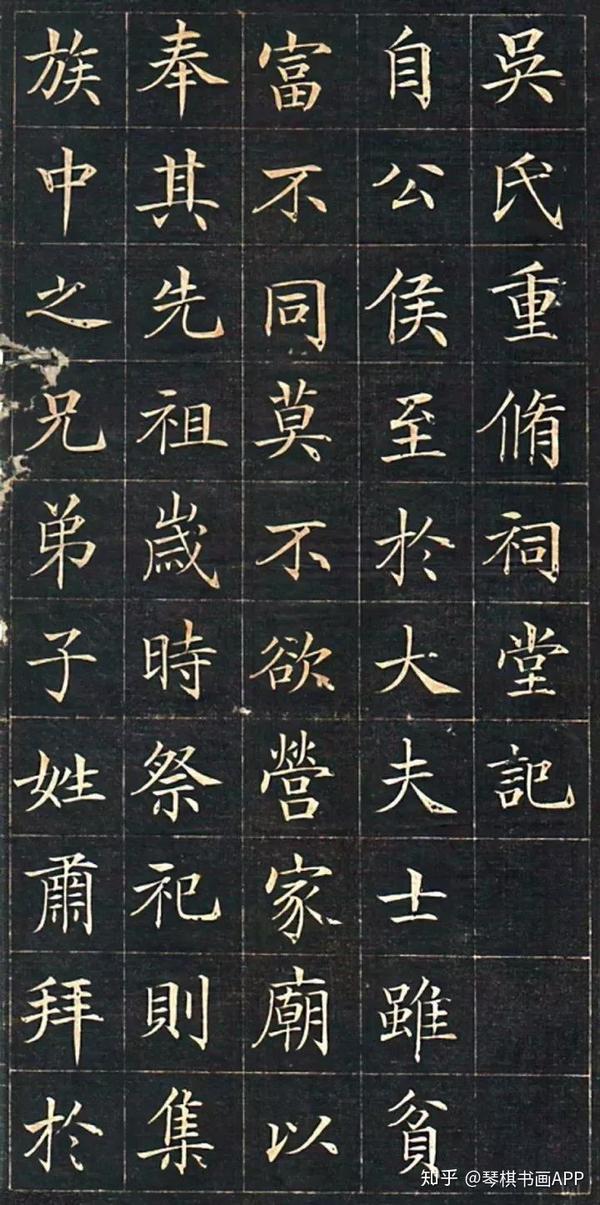 吳氏重脩祠堂記
自公侯至於大夫士雖貧
富不同莫不欲營家廟以
奉其先祖歲時祭祀則集
族中之兄弟子姓肅拜於
知乎 @琴棋书画APP